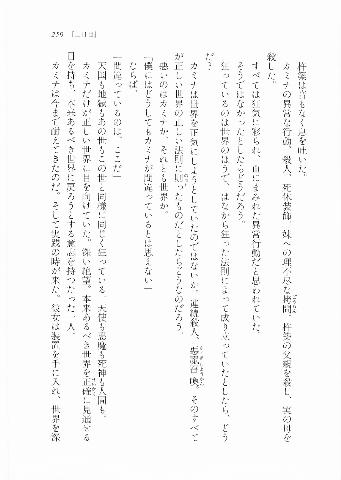 259　［三日目］
杵築は音もなく息を吐いた。
カミナの異常な行動。殺人、死体装飾、妹への理不尽な拷問。杵築の父親を殺し、実の母を
殺した。
すべては狂気に彩られ、血にまみれた異常行動だと思われていた。
そうではなかったとしたらどうだろう。
狂っているのは世界のほうで、はなから狂った法則によって成り立っていたとしたら、どう
だ？
カミナは世界を正気にしようとしていたのではないか。連続殺人、悪魔召喚。そのすべて
が正しい世界の正しい法則に則ったものだとしたらどうなのだろう。
悪いのはカミナか、それとも世界か。
「僕にはどうしてもカミナが間違っているとは思えない」
ならば。
「間違っているのは、ここだ」
天国も地獄もあの世もこの世と同様に同じく狂っている。天使も悪魔も死神も人間も。
カミナだけが正しい世界に目を向けていた。深い絶望。本来あるべき世界を正確に見通せる
目を持ち、本来あるべき世界に戻ろうとする意志を持つたった一人。
カミナは今まで耐えてきたのだ。そして実践の時が来た。彼女は装置を手に入れ、世界を深